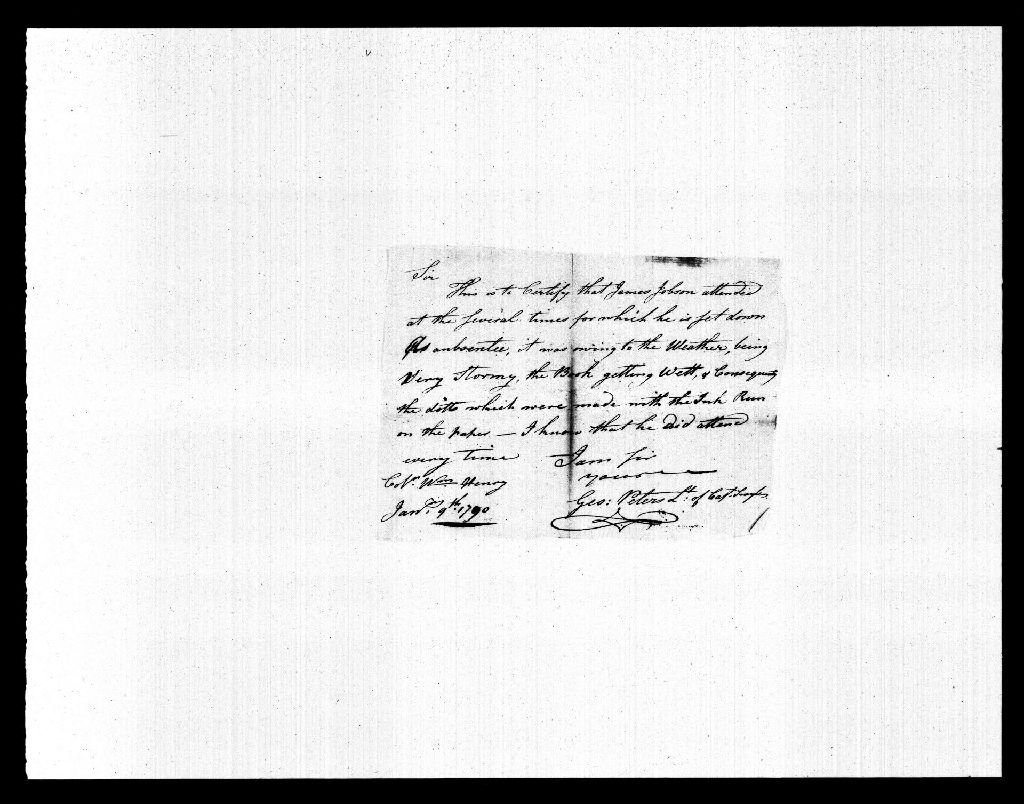 Sir
This is to Certify that James Jobson attended
at the several times for which he is set down
As anbsentee, it was owing to the Weather, being
Very Stormy, the Book getting Wett, & Consequently
the dotts which were made with the Ink Run
on the paper — I know that he did attend
every time I am Sir
yours
Coln. Wm. Henry
Geo: Peters Lt. of
Jany. 9th. 1790